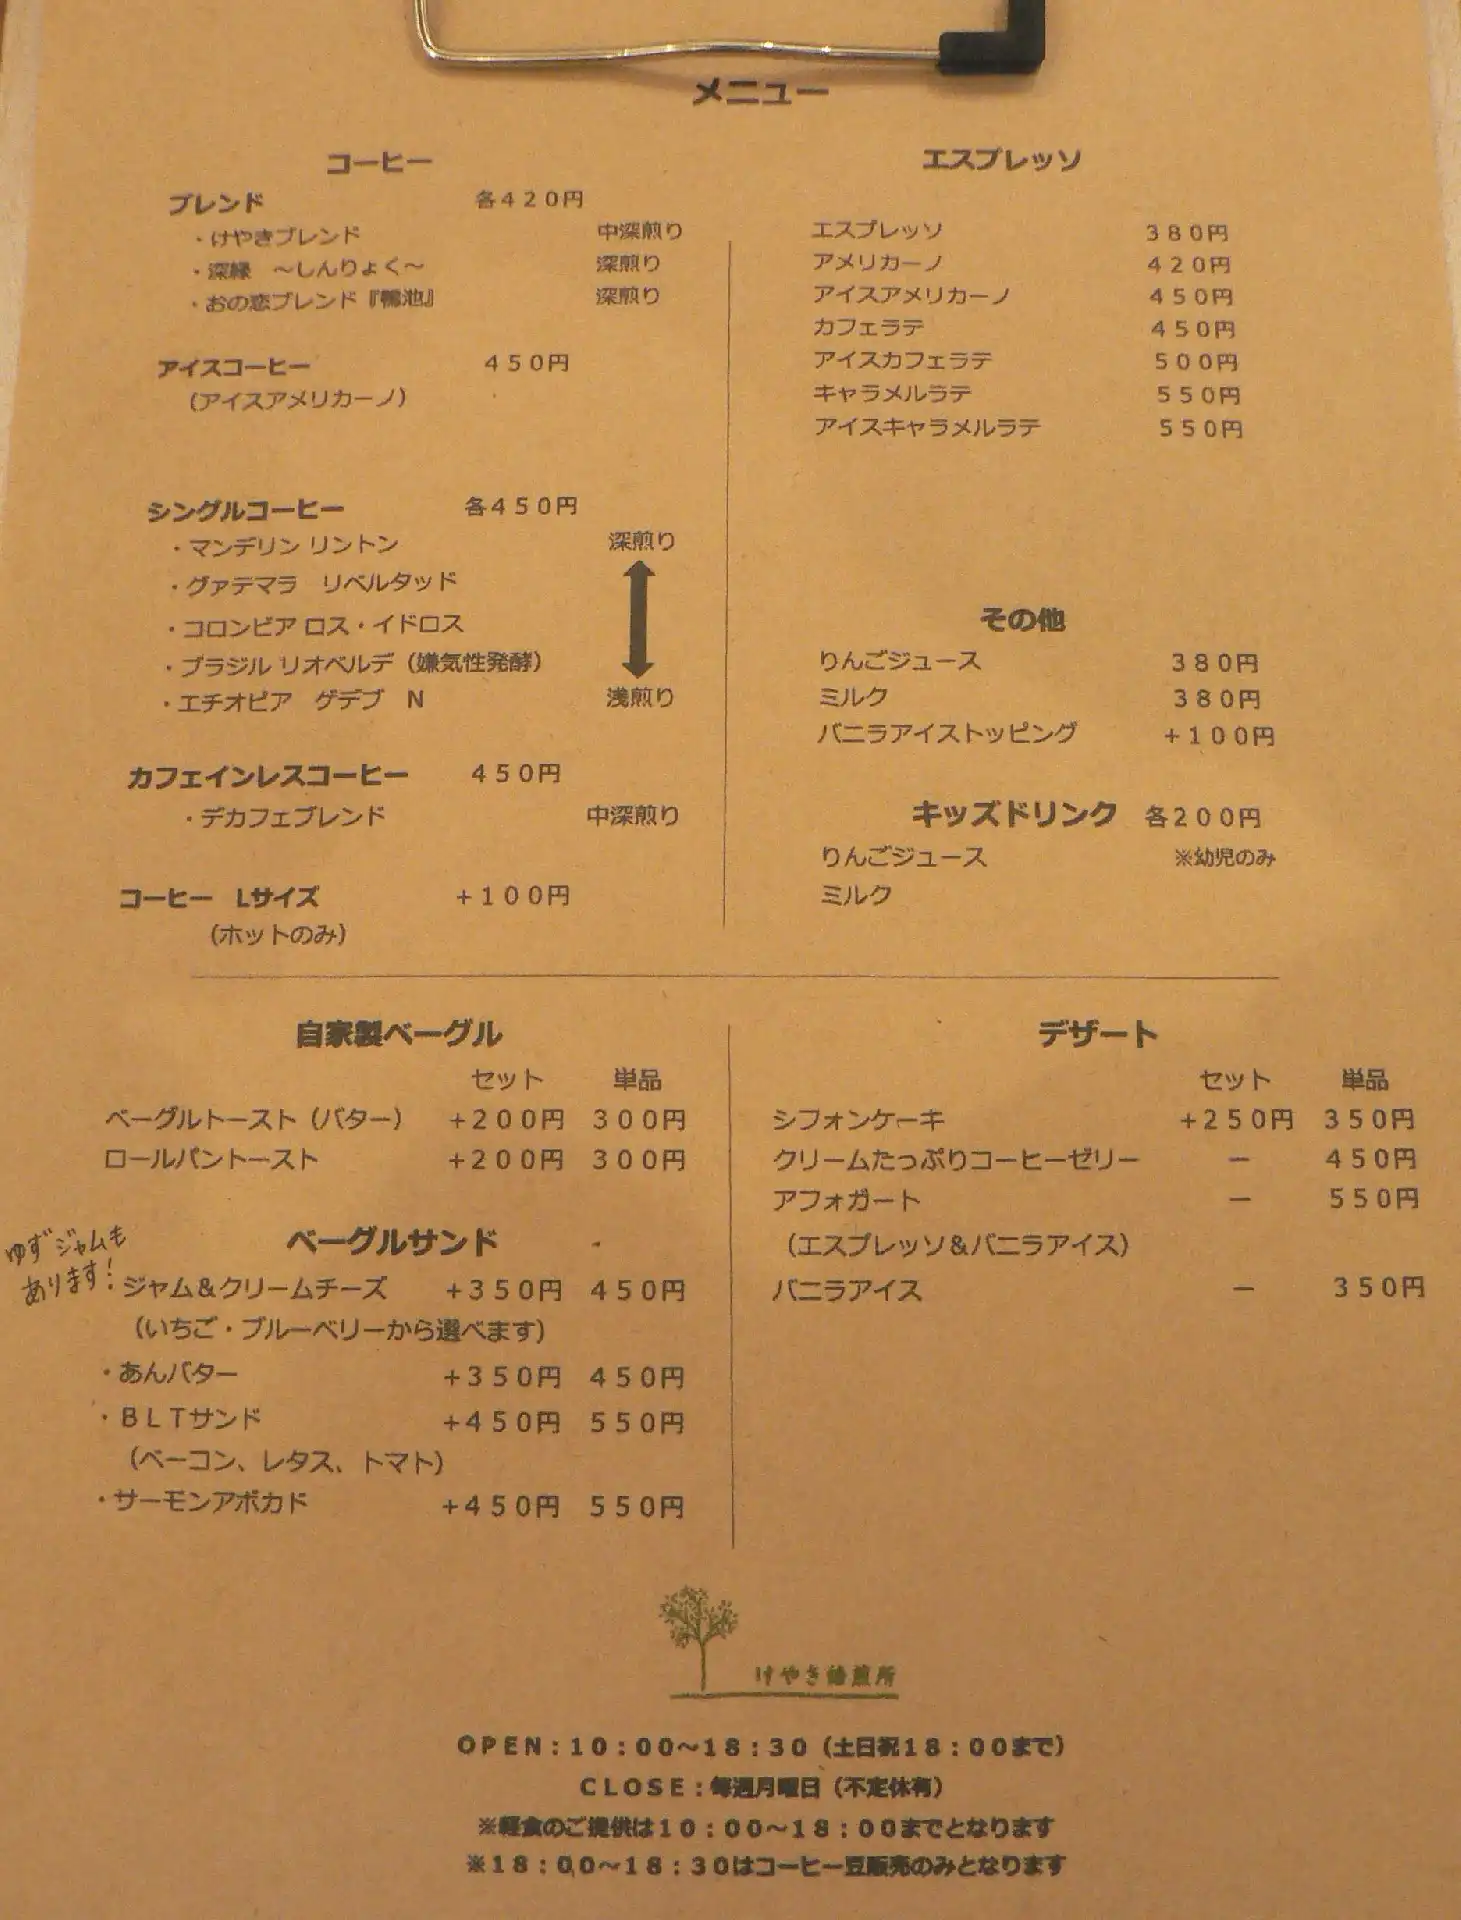 メニュー
コーヒー
ブレンド 各420円
・けやきブレンド 中深煎り
・深緑 ～しんりょく～ 深煎り
・おの恋ブレンド『鴨池』 深煎り
アイスコーヒー 450円
（アイスアメリカーノ）
シングルコーヒー 各450円
・マンデリン リントン 深煎り
・グァテマラ リベルタッド
・コロンビア ロス・イドロス
・ブラジル リオベルデ（嫌気性発酵）
・エチオピア ゲデブ N 浅煎り
カフェインレスコーヒー 450円
・デカフェブレンド 中深煎り
コーヒー Lサイズ +100円
（ホットのみ）
エスプレッソ
エスプレッソ 380円
アメリカーノ 420円
アイスアメリカーノ 450円
カフェラテ 450円
アイスカフェラテ 500円
キャラメルラテ 550円
アイスキャラメルラテ 550円
その他
りんごジュース 380円
ミルク 380円
バニラアイストッピング +100円
キッズドリンク 各200円
りんごジュース ※幼児のみ
ミルク
自家製ベーグル
セット 単品
ベーグルトースト（バター） +200円 300円
ロールパントースト +200円 300円
ベーグルサンド
ゆずジャムも
あります!
ジャム＆クリームチーズ +350円 450円
（いちご・ブルーベリーから選べます）
・あんバター +350円 450円
・BLTサンド +450円 550円
（ベーコン、レタス、トマト）
・サーモンアボカド +450円 550円
デザート
セット 単品
シフォンケーキ +250円 350円
クリームたっぷりコーヒーゼリー － 450円
アフォガート － 550円
（エスプレッソ＆バニラアイス）
バニラアイス － 350円
けやき焙煎所
OPEN：10：00～18：30（土日祝18：00まで）
CLOSE：毎週月曜日（不定休有）
※軽食のご提供は10：00～18：00までとなります
※18：00～18：30はコーヒー豆販売のみとなります